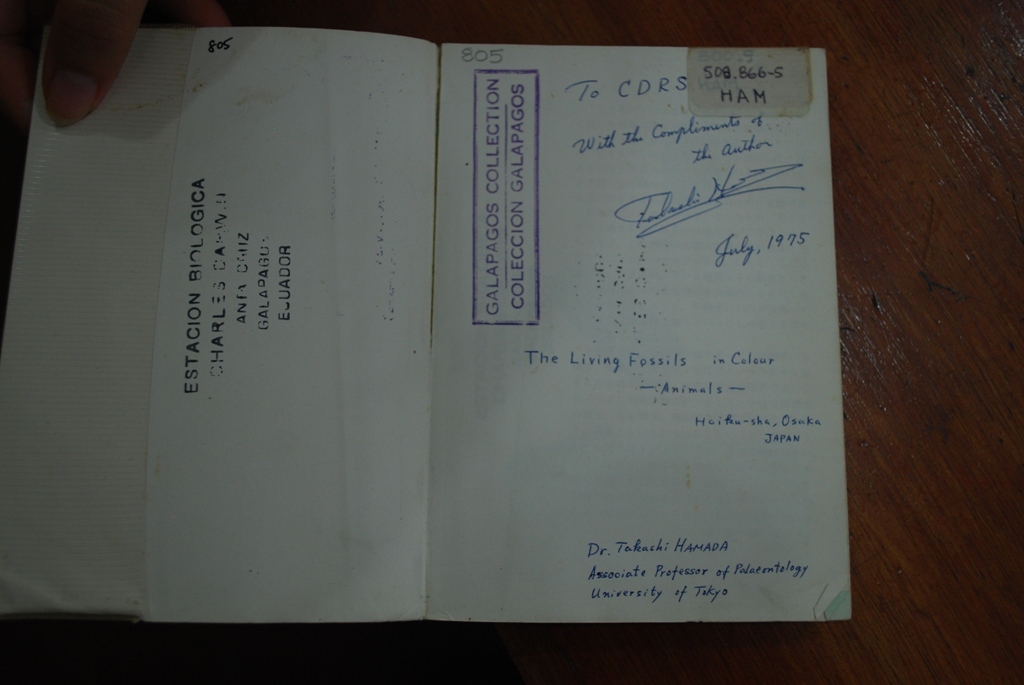 805
ESTACION BIOLOGICA
CHARLES DARWIN
GALAPAGOS
ECUADOR
805
GALAPAGOS COLLECTION
COLECCION GALAPAGOS
508.866-5
HAM
To CDRS
With the Compliments of
the author
July, 1975
The Living Fossils in Colour
— Animals —
Hoiku-sha, Osaka
JAPAN
Dr. Takashi HAMADA
Associate Professor of Palaeontology
University of Tokyo